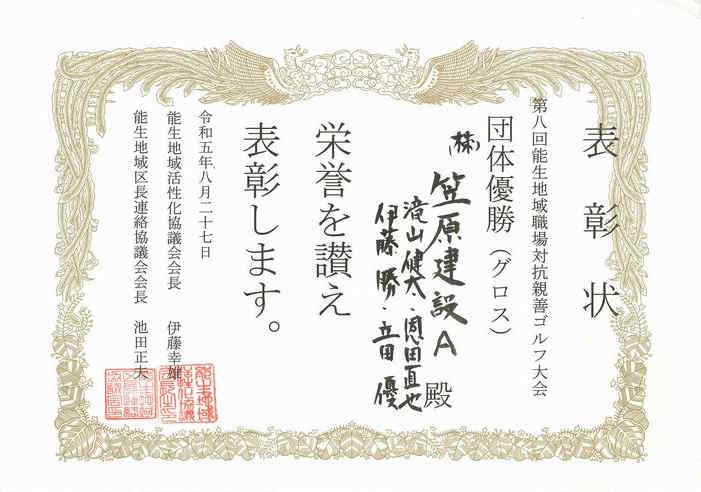 表彰状
第八回能生地域職場対抗親善ゴルフ大会
団体優勝（グロス）
㈱笠原建設A殿
滝山健太・恩田直也
伊藤勝・五田優
栄誉を讃え
表彰します。
令和五年八月二十七日
能生地域活性化協議会会長 伊藤幸雄
能生地域区長連絡協議会会長 池田正夫